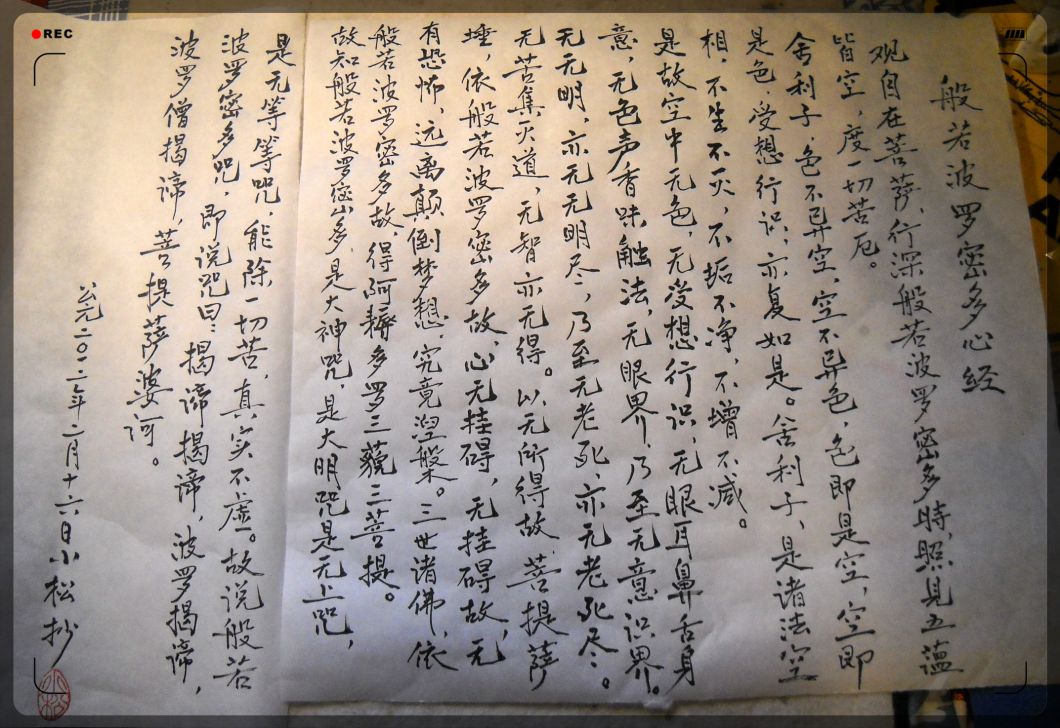 REC
般若波罗密多心经
观自在菩萨，行深般若波罗密多時，照見五蕴
皆空，度一切苦厄。
舍利子，色不异空，空不异色，色即是空，空即
是色，受想行识，亦复如是。舍利子，是诸法空
相，不生不灭，不垢不净，不增不减。
是故空中无色，无受想行识，无眼耳鼻舌身
意，无色声香味触法，无眼界，乃至无意识界。
无无明，亦无无明尽，乃至无老死，亦无老死尽。
无苦集灭道，无智亦无得。以无所得故，菩提萨
埵，依般若波罗密多故，心无挂碍，无挂碍故，无
有恐怖，远离颠倒梦想，究竟涅槃。三世诸佛，依
般若波罗密多故，得阿耨多罗三藐三菩提。
故知般若波罗密多，是大神咒，是大明咒是无上咒，
是无等等咒，能除一切苦，真实不虚。故说般若
波罗密多咒，即说咒曰：揭谛揭谛，波罗揭谛，
波罗僧揭谛，菩提萨婆诃。
公元二〇一二年二月十六日小松抄